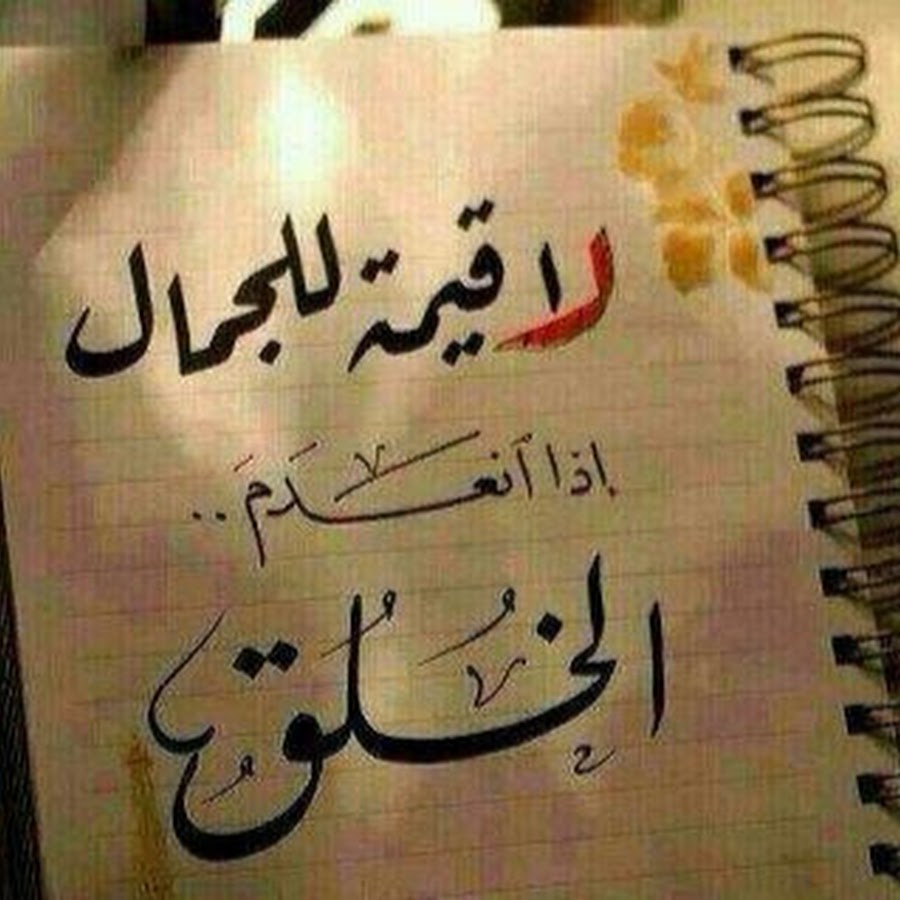 لا قيمة للجمال
إذا أنعدمَ ..
الخُلُق